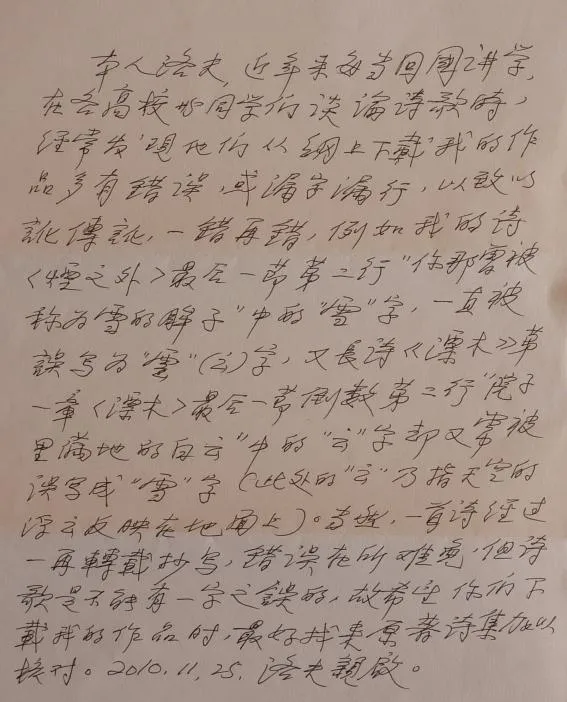 本人洛夫,近年来每当回國讲学,
在各高校与同学们谈論诗歌時,
經常发現他们从網上下載我的作
品多有錯誤,或漏字漏行,以致以
訛傳訛,一錯再錯,例如我的诗
〈煙之外〉最后一节第二行“你那曾被
称为雪的眸子”中的“雪”字,一直被
誤写为“雲”(云)字,又長诗《漂木》第
一章〈漂木〉最后一节倒数第二行“院子
里满地的白云”中的“云”字却又常被
误写成“雪”字(此处的“云”乃指天空的
浮云反映在地面上)。当然,一首诗經过
一再轉載抄写,錯误在所难免,但诗
歌是不能有一字之錯的,故希望你们下
載我的作品时,最好找来原著诗集加以
核对。2010.11.25.洛夫親啟。